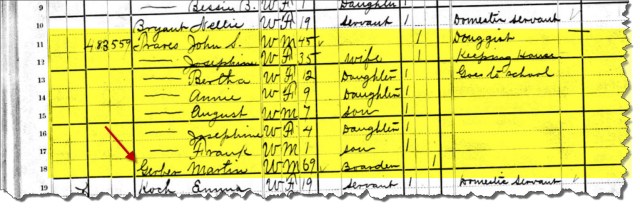 9 Bessie B. W F 1 Daughter 1
10 Bryant Nellie W F 19 Servant 1 Domestic Servant
11 483 559 John S. W M 45 1 Douggist
12 — Josephine W F 35 wife 1 Keeping House
13 — Bertha W F 12 Daughter 1 Goes to school
14 — Annie W F 9 Daughter 1
15 — August W M 7 son 1
16 — Josephine W F 4 Daughter 1
17 — Frank W M 1 son 1
18 Gerber Martin W M 69 Boarder 1
19 Koch Emma W F 19 servant 1 Domestic Servant